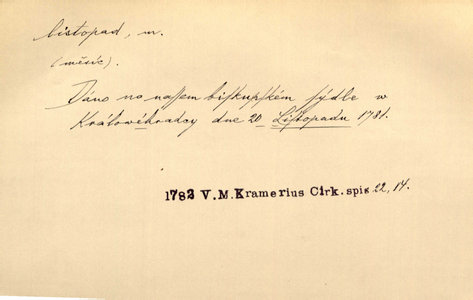 listopad, m.
(měsíc).
Dáno na naſem biſkupſkém ſýdle w
Králowéhradcy dne 20 Liſtopadu 1781.
1782 V.M.Kramerius Cirk. spis 22, 14.